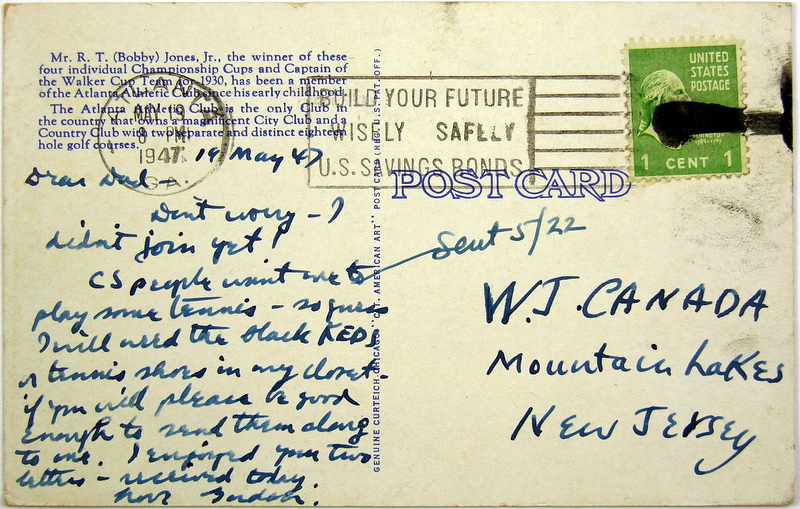 Mr. R. T. (Bobby) Jones, Jr., the winner of these
four individual Championship Cups and Captain of
the Walker Cup Team for 1930, has been a member
of the Atlanta Athletic Club since his early childhood.
The Atlanta Athletic Club is the only Club in
the country that owns a magnificent City Club and a
Country Club with two separate and distinct eighteen
hole golf courses.
ATLANTA
MAY 19
8 PM
1947
GA.
BUILD YOUR FUTURE
WISELY SAFELY
U.S. SAVINGS BONDS
UNITED
STATES
POSTAGE
1 CENT 1
POST CARD
19 May 47
Dear Dad –
Don't worry – I
didn't join yet!
CS people want me to
play some tennis – so guess
I will need the black KEDS
or tennis shoes in my closet –
if you will please be good
enough to send them along
to me. I enjoyed your two
letters – received today.
Love Gordon.
Sent 5/22
GENUINE CURTEICH-CHICAGO "C.T. AMERICAN ART" POST CARD (REG. U.S. PAT. OFF.)
W.J. CANADA
Mountain Lakes
New Jersey